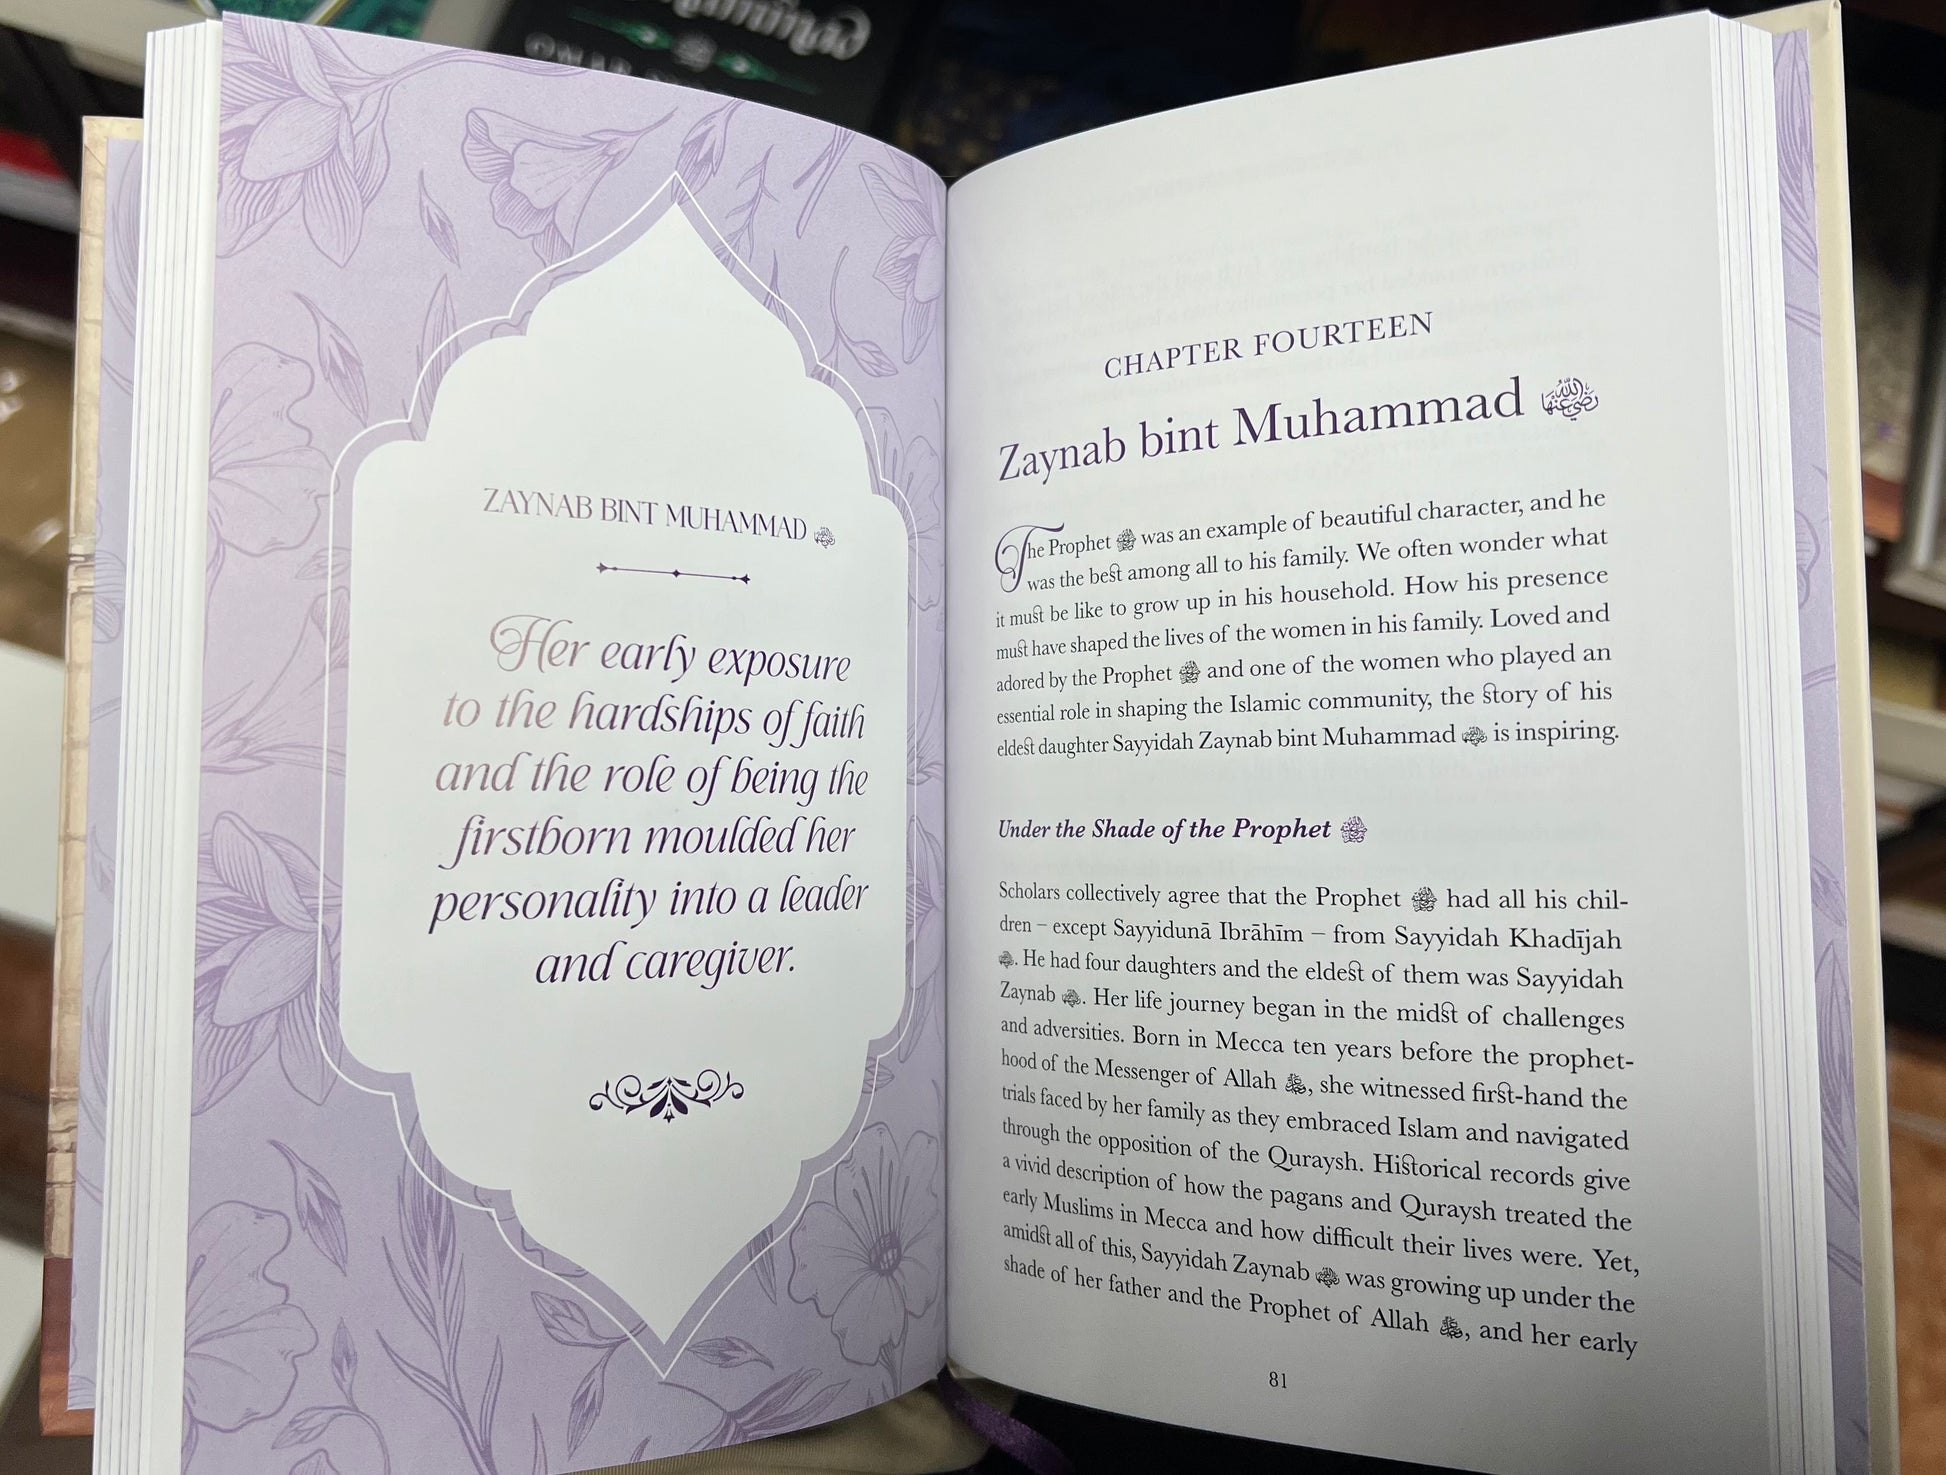 ZAYNAB BINT MUHAMMAD
Her early exposure
to the hardships of faith
and the role of being the
firstborn moulded her
personality into a leader
and caregiver.
CHAPTER FOURTEEN
Zaynab bint Muhammad رضي الله عنها
The Prophet ﷺ was an example of beautiful character, and he
was the best among all to his family. We often wonder what
it must be like to grow up in his household. How his presence
must have shaped the lives of the women in his family. Loved and
adored by the Prophet ﷺ and one of the women who played an
essential role in shaping the Islamic community, the story of his
eldest daughter Sayyidah Zaynab bint Muhammad is inspiring.
Under the Shade of the Prophet ﷺ
Scholars collectively agree that the Prophet ﷺ had all his chil-
dren – except Sayyidunā Ibrāhīm – from Sayyidah Khadījah
. He had four daughters and the eldest of them was Sayyidah
Zaynab . Her life journey began in the midst of challenges
and adversities. Born in Mecca ten years before the prophet-
hood of the Messenger of Allah ﷺ, she witnessed first-hand the
trials faced by her family as they embraced Islam and navigated
through the opposition of the Quraysh. Historical records give
a vivid description of how the pagans and Quraysh treated the
early Muslims in Mecca and how difficult their lives were. Yet,
amidst all of this, Sayyidah Zaynab was growing up under the
shade of her father and the Prophet of Allah ﷺ, and her early
81